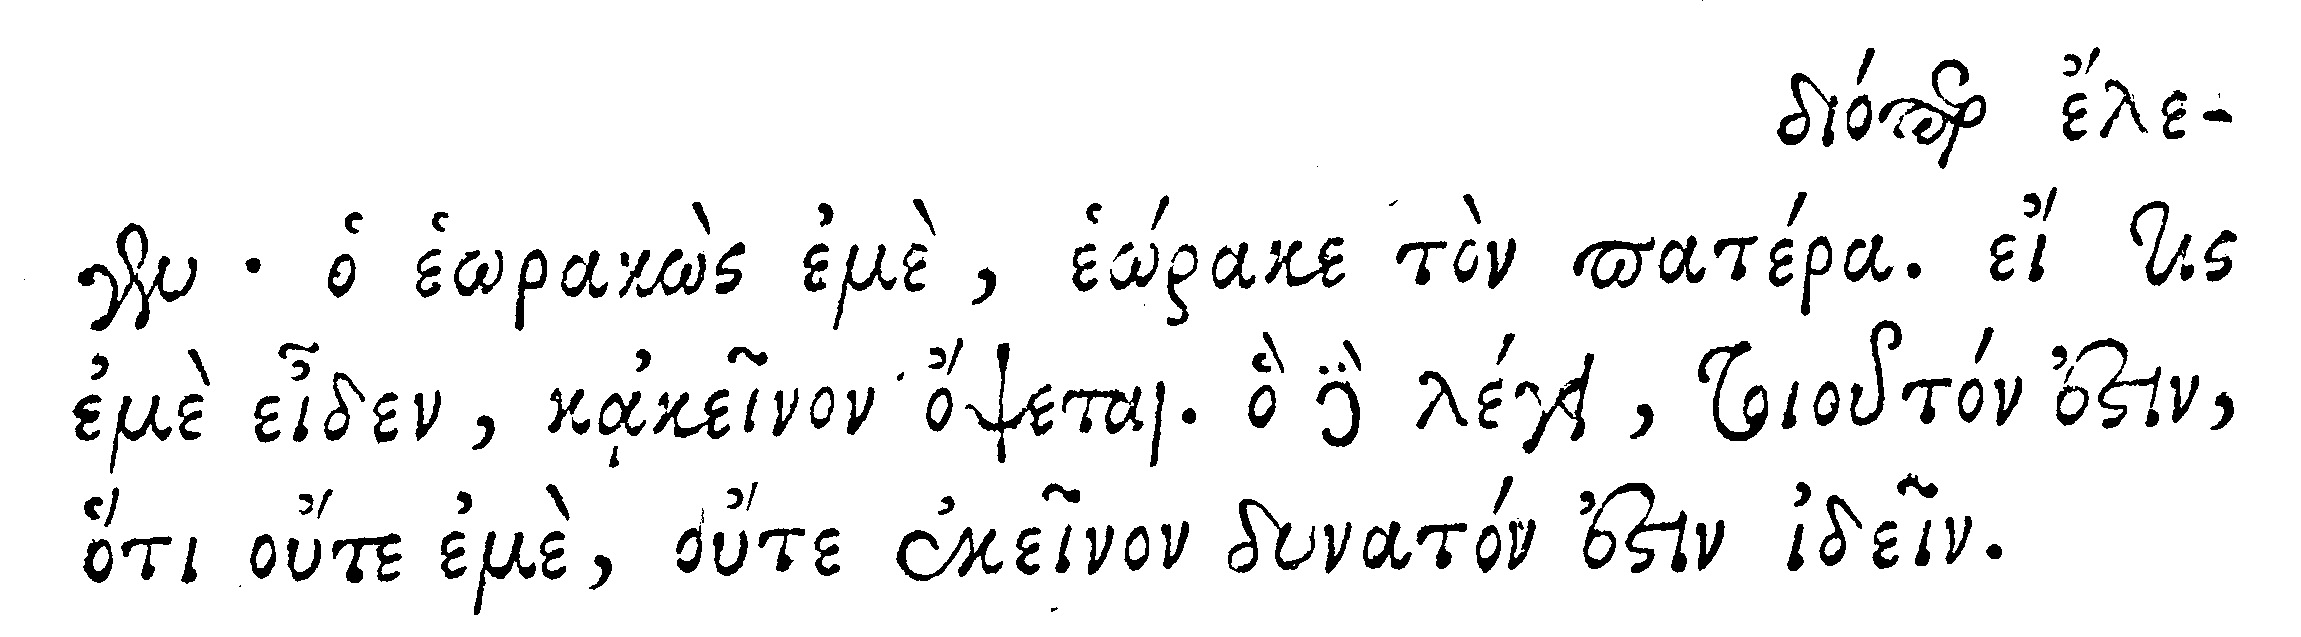 διόπερ ἔλε-
γεν · ὁ ἑωρακὼς ἐμὲ, ἑώρακε τὸν πατέρα. εἴ τις
ἐμὲ εἶδεν, κᾀκεῖνον ὄψεται. ὃ δὲ λέγει, τοιοῦτόν ἐστιν,
ὅτι οὔτε ἐμὲ, οὔτε ἐκεῖνον δυνατόν ἐστιν ἰδεῖν.